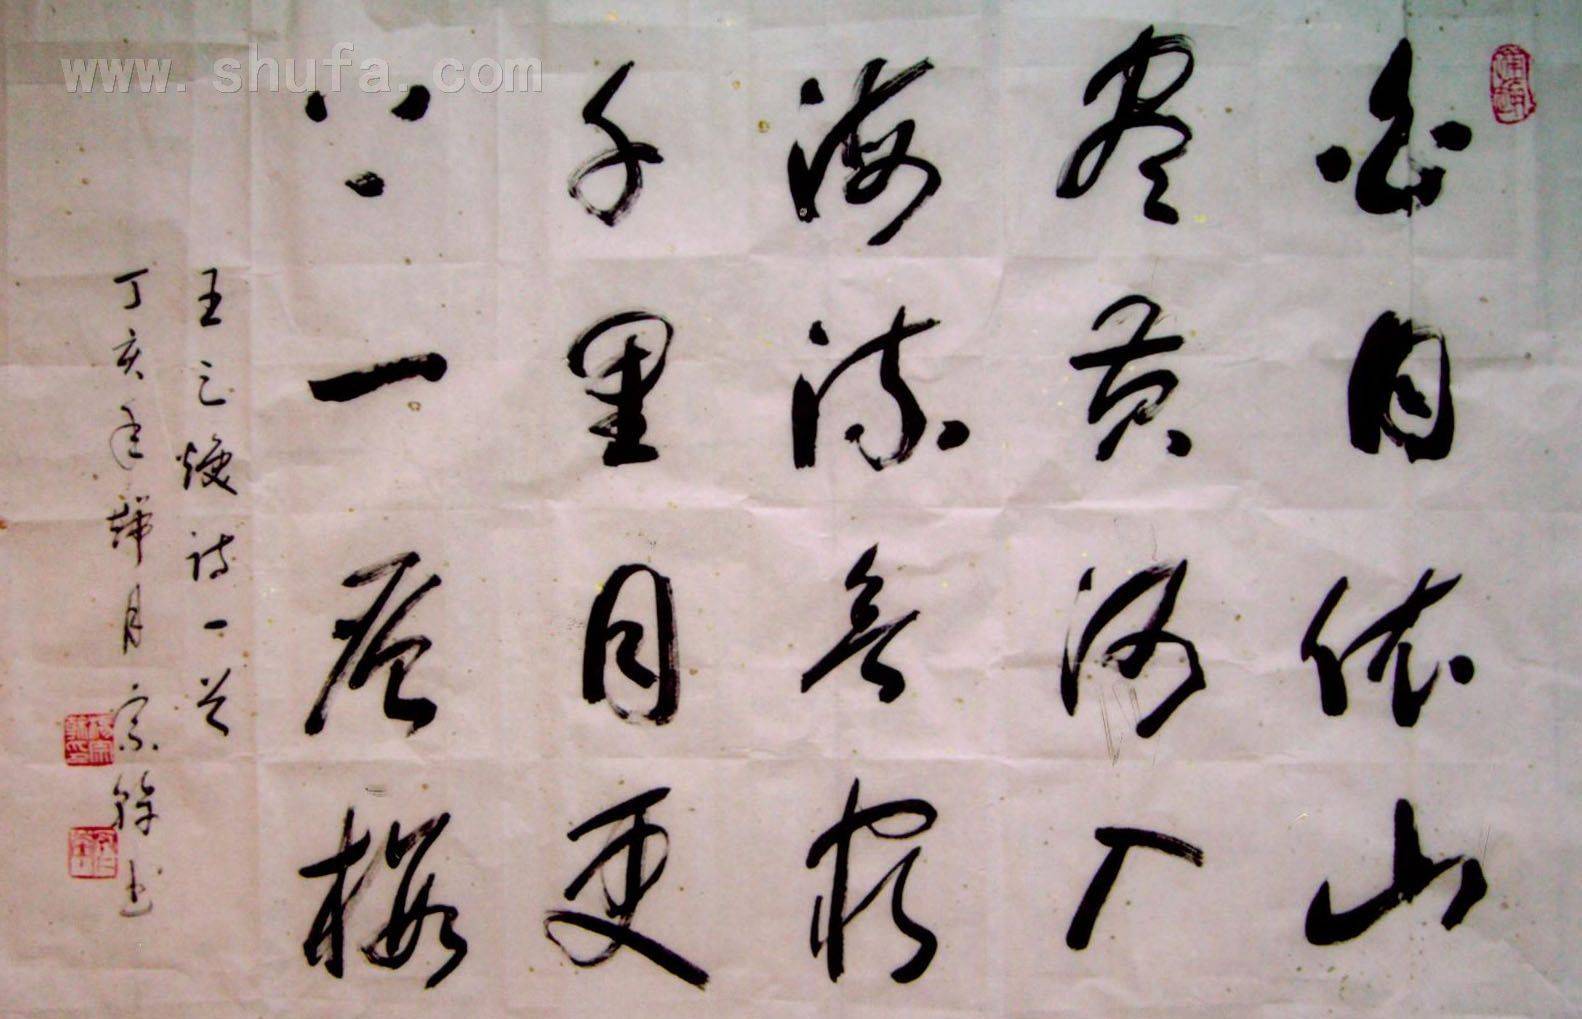 白日依山
尽黄河入
海流欲穷
千里目更
上一层楼
王之焕诗一首
丁亥年 月宗 书
www.shufa.com